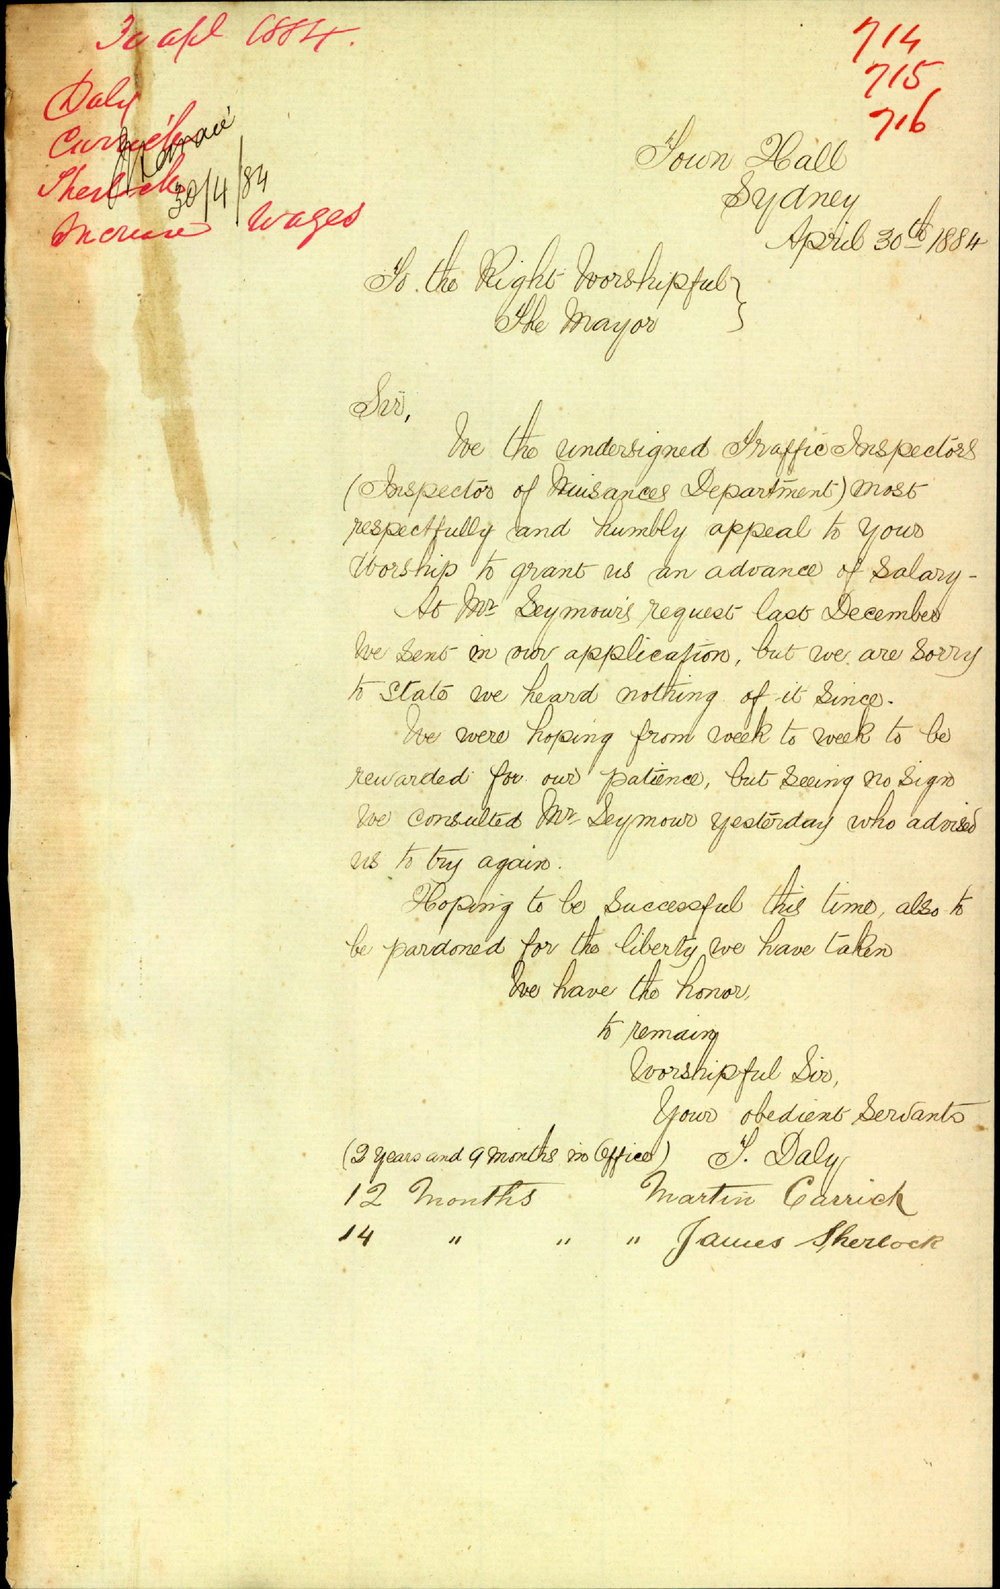 30 Apl 1884.
714
715
716
Daly
Carrick
Sherlock
Increase Wages
30/4/84
Town Hall
Sydney
April 30th 1884
To the Right Worshipful }
The Mayor
Sir,
We the undersigned Traffic Inspectors
(Inspector of Nuisances Department) most
respectfully and humbly appeal to Your
Worship to grant us an advance of Salary-
At Mr Seymour's request last December
We sent in our application, but we are sorry
to state we heard nothing of it since.
We were hoping from week to week to be
rewarded for our patience, but seeing no sign
We consulted Mr Seymour yesterday who advised
us to try again.
Hoping to be successful this time, also to
be pardoned for the liberty we have taken
We have the honor,
to remain
Worshipful Sir,
Your obedient Servants
(2 years and 9 months in Office) T. Daly
12 Months Martin Carrick
14 " " " James Sherlock